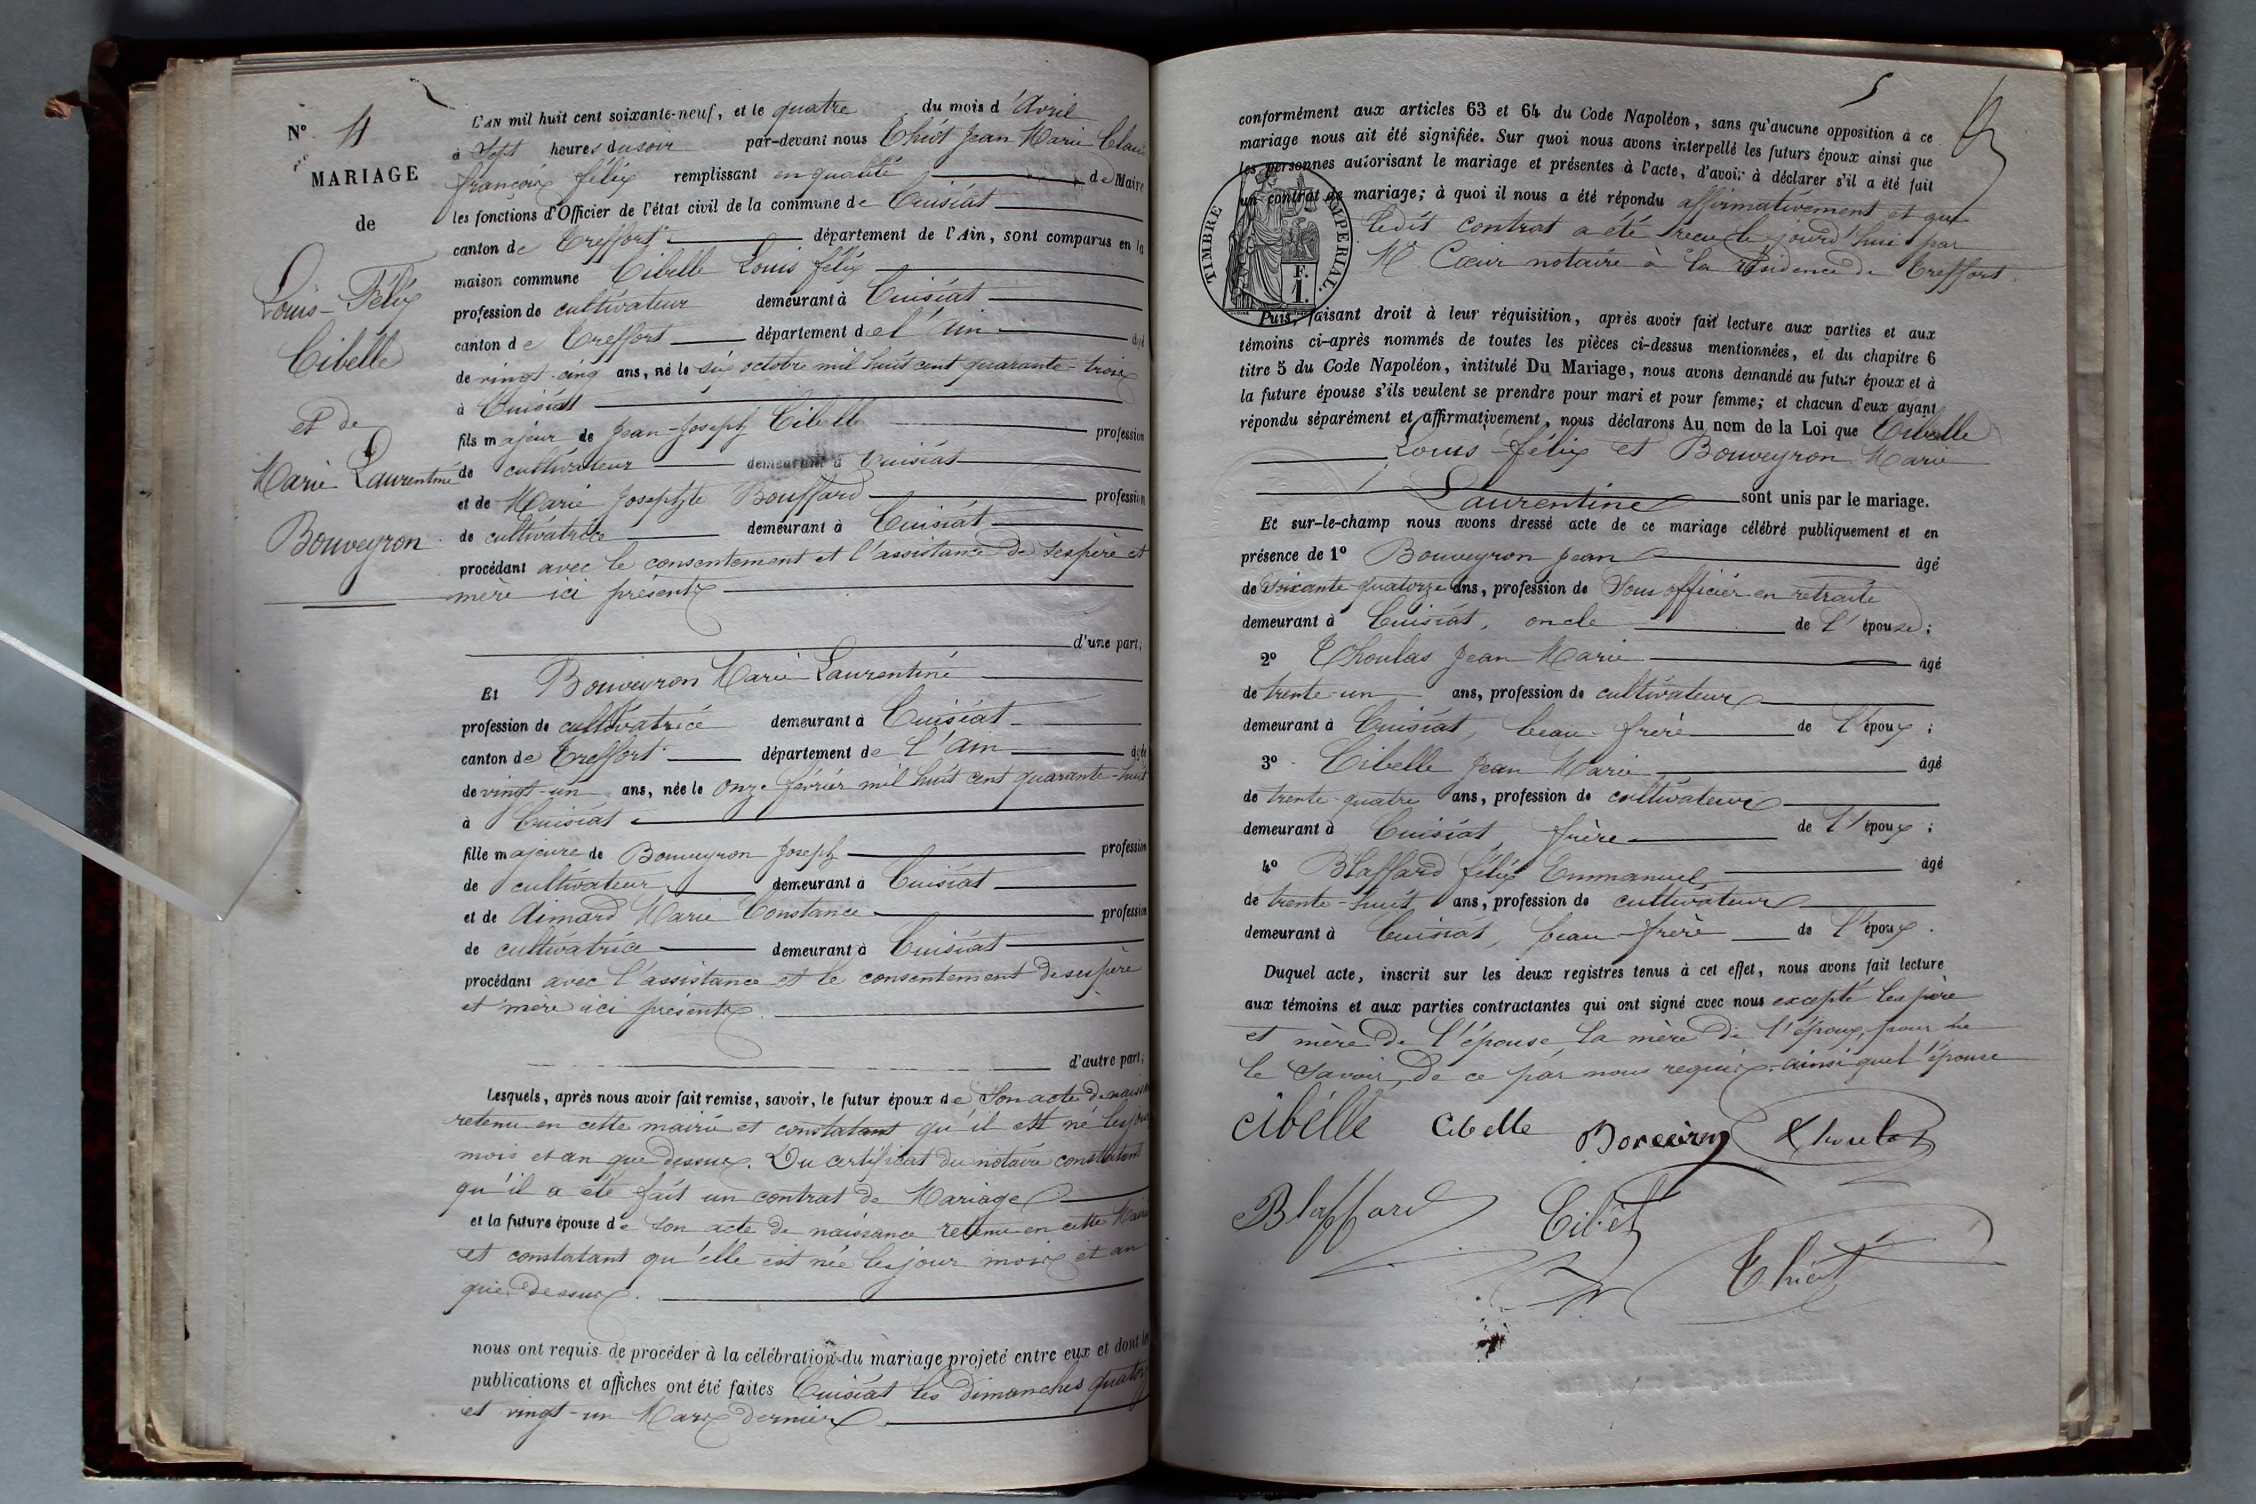 N° 4
MARIAGE
de
Louis-Félix
Cibelle
et de
Marie Laurentine
Bouveyron
L'AN mil huit cent soixante-neuf, et le quatre du mois d'Avril
à Sept heures du soir par-devant nous Thiot Jean Marie
françois félix remplissant en qualité de Maire
les fonctions d'Officier de l'état civil de la commune de Cuisiat
canton de Treffort département de l'Ain, sont comparus en la
maison commune Cibelle Louis félix
profession de cultivateur demeurant à Cuisiat
canton de Treffort département de l'Ain âgé
de vingt-cinq ans, né le six octobre mil huit cent quarante-trois
à Cuisiat
fils majeur de Jean-Joseph Cibelle profession
de cultivateur demeurant à Cuisiat
et de Marie Josephte Bouffard profession
de cultivatrice demeurant à Cuisiat
procédant avec le consentement et l'assistance de ses père et
mère ici présents
d'une part;
Et Bouveyron Marie Laurentine
profession de cultivatrice demeurant à Cuisiat
canton de Treffort département de l'Ain âgée
de vingt-un ans, née le onze février mil huit cent quarante-huit
à Cuisiat
fille majeure de Bouveyron Joseph profession
de cultivateur demeurant à Cuisiat
et de Aimard Marie Constance profession
de cultivatrice demeurant à Cuisiat
procédant avec l'assistance et le consentement de ses père
et mère ici présents
d'autre part;
Lesquels, après nous avoir fait remise, savoir, le futur époux de Son acte de
retenu en cette mairie et constatant qu'il est né les
mois et an que dessus. Du certificat du notaire constatant
qu'il a été fait un contrat de Mariage
et la future épouse de son acte de naissance retenu en cette Mairie
et constatant qu'elle est née les jour mois et an
que dessus.
nous ont requis de procéder à la célébration du mariage projeté entre eux et dont les
publications et affiches ont été faites Cuisiat les dimanches quatorze
et vingt-un Mars dernier
5
conformément aux articles 63 et 64 du Code Napoléon, sans qu'aucune opposition à ce
mariage nous ait été signifiée. Sur quoi nous avons interpellé les futurs époux ainsi que
les personnes autorisant le mariage et présentes à l'acte, d'avoir à déclarer s'il a été fait
un contrat de mariage; à quoi il nous a été répondu affirmativement et que
ledit contrat a été reçu le jourd'hui par
Me Cœur notaire à la résidence de Treffort
TIMBRE IMPERIAL.
F.
1.
Puis, faisant droit à leur réquisition, après avoir fait lecture aux parties et aux
témoins ci-après nommés de toutes les pièces ci-dessus mentionnées, et du chapitre 6
titre 5 du Code Napoléon, intitulé Du Mariage, nous avons demandé au futur époux et à
la future épouse s'ils veulent se prendre pour mari et pour femme; et chacun d'eux ayant
répondu séparément et affirmativement, nous déclarons Au nom de la Loi que Cibelle
Louis félix et Bouveyron Marie
Laurentine sont unis par le mariage.
Et sur-le-champ nous avons dressé acte de ce mariage célébré publiquement et en
présence de 1° Bouveyron Jean âgé
de soixante-quatorze ans, profession de Sous officier en retraite
demeurant à Cuisiat, oncle de l'épouse;
2° Thoulas Jean Marie âgé
de trente-un ans, profession de cultivateur
demeurant à Cuisiat, beau-frère de l'époux;
3° Cibelle Jean Marie âgé
de trente-quatre ans, profession de cultivateur
demeurant à Cuisiat, frère de l'époux;
4° Blaffard félix Emmanuel âgé
de trente-huit ans, profession de cultivateur
demeurant à Cuisiat, beau-frère de l'époux.
Duquel acte, inscrit sur les deux registres tenus à cet effet, nous avons fait lecture
aux témoins et aux parties contractantes qui ont signé avec nous excepté les père
et mère de l'épouse, la mère de l'époux, pour ne
le savoir, de ce par nous requis, ainsi que l'épouse
Cibelle Cibelle Thoulas
Blaffard Thiot